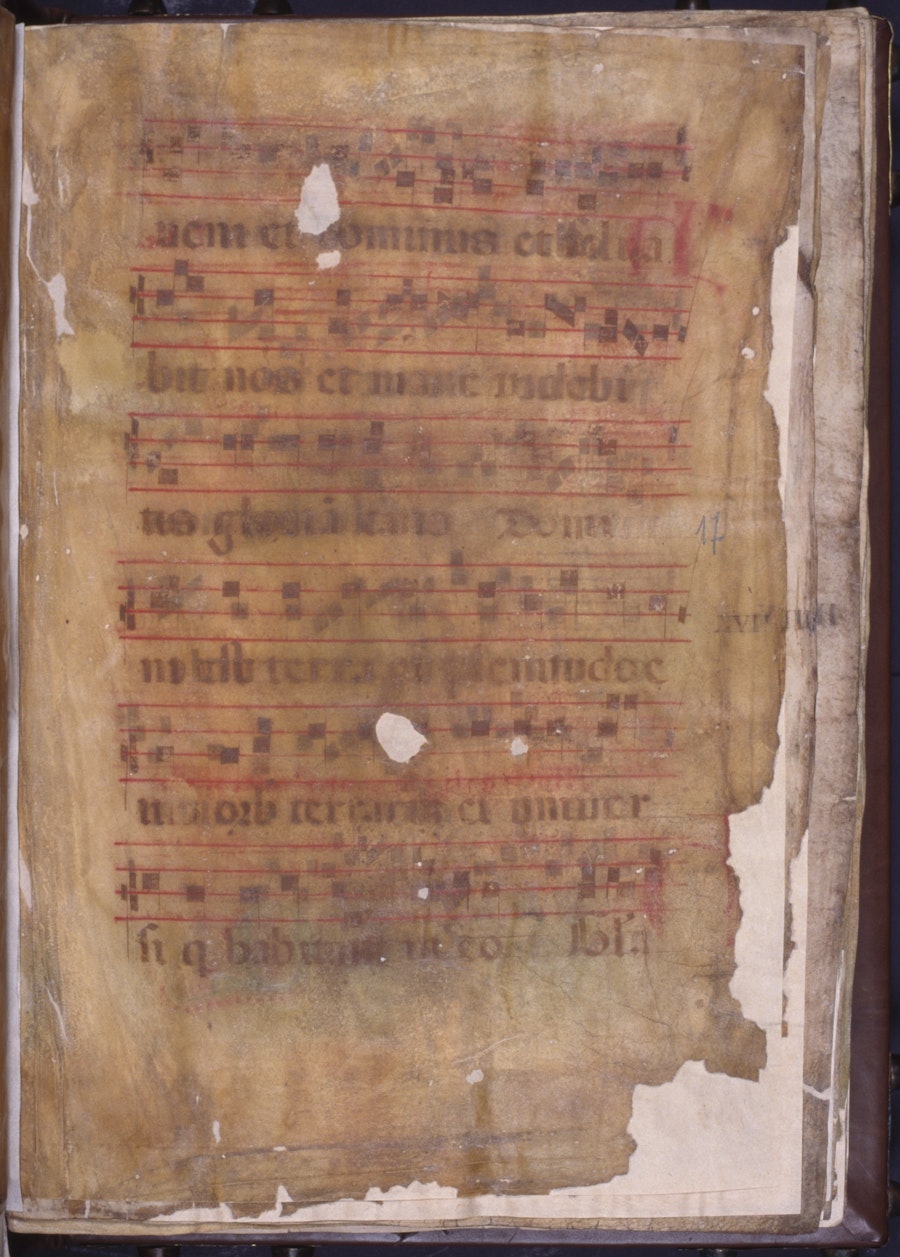 uem et dominus et salua
bit nos et mane uidebi
tis gloriam Domi
17
ni est terra et plenitudo e
XVI
ius orb terrarum et uniuer
si q habitant in eo